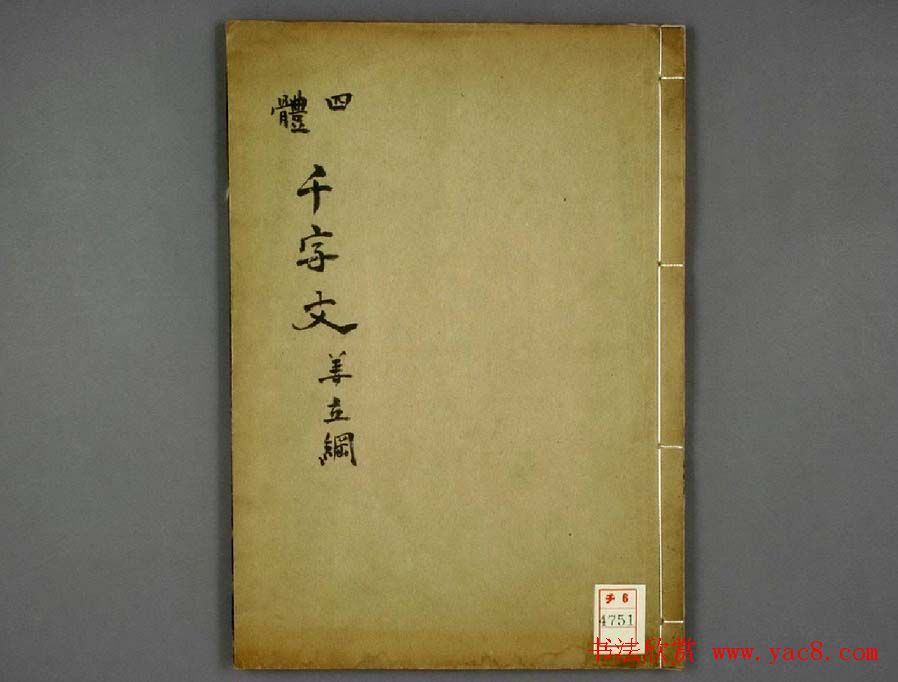 四體
千字文
姜立綱
チ6
4751
书法欣赏 www.yac8.com